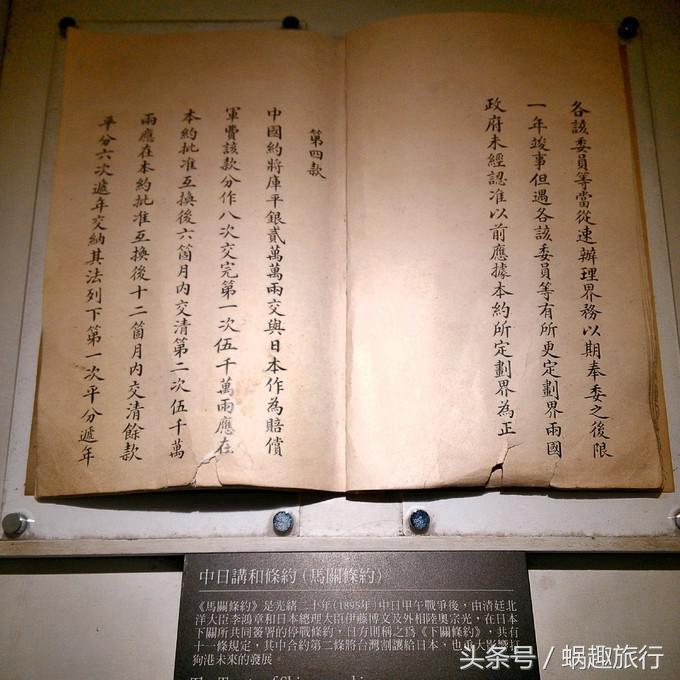 各該委員等當從速辦理界務以期奉委之後限
一年竣事但遇各該委員等有所更定劃界兩國
政府未經認准以前應據本約所定劃界為正
第四款
中國約將庫平銀貳萬萬兩交與日本作為賠償
軍費該款分作八次交完第一次伍千萬兩應在
本約批准互換後六箇月內交清第二次伍千萬
兩應在本約批准互換後十二箇月內交清餘款
平分六次遞年交納其法列下第一次平分遞年
中日講和條約(馬關條約)
《馬關條約》是光緒二十年(1895年)中日甲午戰爭後，由清廷北
洋大臣李鴻章和日本總理大臣伊藤博文及外相陸奧宗光，在日本
下關所共同簽署的停戰條約，日方則稱之為《下關條約》，共有
十一條規定，其中合約第二條將台灣割讓給日本，也重大影響打
狗港未來的發展。
头条号 / 蜗趣旅行